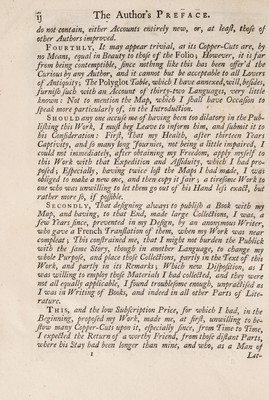 ij The Author's PREFACE.
do not contain, either Accounts entirely new, or, at least, those of
other Authors improved.
FOURTHLY, It may appear trivial, as its Copper-Cuts are, by
no Means, equal in Beauty to those of the Folio; However, it is far
from being contemptible, since nothing like this has been offer'd the
Curious by any Author, and it cannot but be acceptable to all Lovers
of Antiquity; The Polyglot Table, which I have annexed, will, besides,
furnish such with an Account of thirty-two Languages, very little
known: Not to mention the Map, which I shall have Occasion to
speak more particularly of, in the Introduction.
SHOULD any one accuse me of having been too dilatory in the Pub-
lishing this Work, I must beg Leave to inform him, and submit it to
his Consideration: First, That my Health, after thirteen Years
Captivity, and so many long Journies, not being a little impaired, I
could not immediately, after obtaining my Freedom, apply myself to
this Work with that Expedition and Assiduity, which I had pro-
posed; Especially, having twice lost the Maps I had made, I was
obliged to make a new one, and then copy it fair; a tiresome Work to
one who was unwilling to let them go out of his Hand less exact, but
rather more so, if possible.
SECONDLY, That designing always to publish a Book with my
Map, and having, to that End, made large Collections, I was, a
few Years since, prevented in my Design, by an anonymous Writer,
who gave a French Translation of them, when my Work was near
compleat; This constrained me, that I might not burden the Publick
with the same Story, though in another Language, to change my
whole Purpose, and place those Collections, partly in the Text of this
Work, and partly in its Remarks; Which new Disposition, as I
was willing to employ those Materials I had collected, and they were
not all equally applicable, I found troublesome enough, unpractised as
I was in Writing of Books, and indeed in all other Parts of Lite-
rature.
THIS, and the low Subscription Price, for which I had, in the
Beginning, proposed my Work, made me, at first, unwilling to be-
stow many Copper-Cuts upon it, especially since, from Time to Time,
I expected the Return of a worthy Friend, from those distant Parts,
where his Stay had been longer than mine, and who, as a Man of
1 Let-